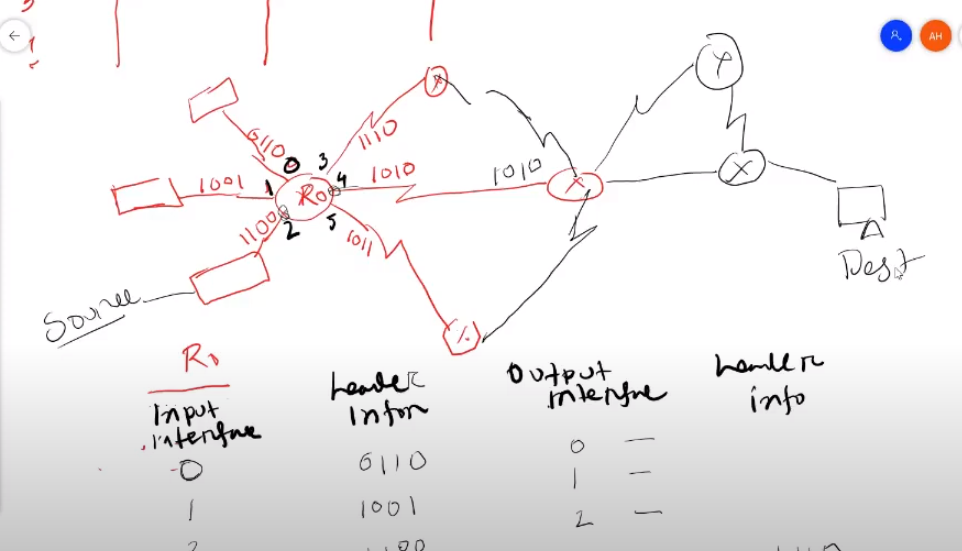 AH
Y
0110
0
3
1110
1001
1
R0
4
1010
1010
X
X
1100
2
5
1011
Dest
Source
R0
Input
interface
header
Infor
Output
interface
header
info
0
0110
0 —
1
1001
1 —
2 —